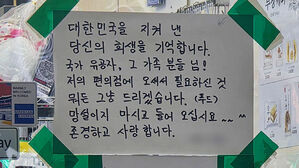 대한민국을 지켜 낸
당신의 희생을 기억합니다.
국가 유공자, 그 가족 분들 님!
저의 편의점에 오셔서 필요하신 것
뭐든 그냥 드리겠습니다. (푸드)
망설이지 마시고 들어 오십시요~~^
존경하고 사랑 합니다.